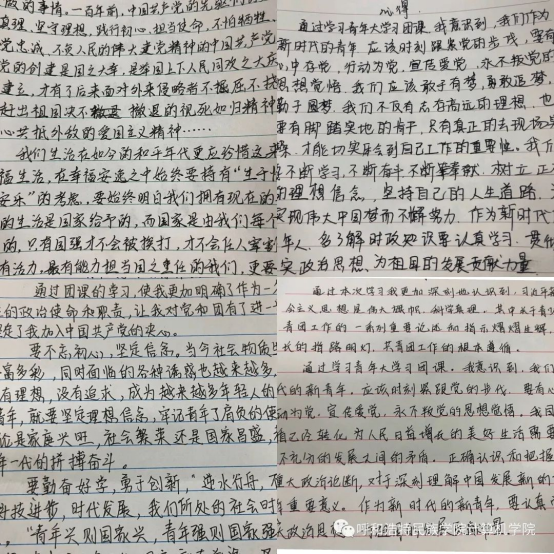 做的事情。一百年前,中国共产党的先驱们
真理、坚守理想、践行初心、担当使命、不怕牺牲、
党忠诚、不负人民的伟大建党精神的中国共产党
党的创建是国之大幸,是举国上下人民同欢之大庆
建立,才有了后来面对外来侵略者不屈不挠
赶出祖国决不撤退的视死如归精神
心共抵外敌的爱国主义精神……
我们生活在如今的和平年代更应珍惜这来
福生活,在幸福安逸之中始终要持有“生于
安乐”的考虑,要始终明白我们拥有现在的
的生活是国家给予的,而国家是由我们每个
的,只有国强才不会被挨打,才不会任人宰割
有活力,最有能力担当国之重任的我们,更要
心得
通过学习青年大学习团课,我意识到,我们作为
新时代的青年应该时刻跟紧党的步伐,要有
中存党,行动为党,宣传爱党,永不叛党的
思想觉悟。我们应该敢于有梦,勇敢追梦
勤于圆梦,我们不仅有志存高远的理想,也
要有脚踏实地的肯干,只有真正的去现场实
,才能切实乐会到自己工作的重要性。我们
不断学习,不断奋斗不断奉献,树立正
的理想信念,坚持自己的人生道路,
实现伟大中国梦而不懈努力。作为新时代
年人,多了解时政知识要认真学习,贯彻
实政治思想,为祖国的发展贡献力量
通过团课的学习,使我更加明确了作为一
的政治使命和职责,让我对党和团有了进一
坚定了我加入中国共产党的决心。
要不忘初心,坚定信念。当今社会物质
丰富多彩,同时面临的各种诱惑也越来越多,
有理想,没有追求,成为越来越多年轻人的
青年,就要坚定理想信念,牢记青年了肩负的使
论是家庭兴旺,社会繁荣还是国家昌盛,
年一代的拼搏奋斗。
要勤奋好学,勇于创新,“逆水行舟,不
科技进步,时代发展,我们所处的社会时
。“青年兴则国家兴,青年强则国家强
通过本次学习我更加深刻地认识到,习近平新
会主义思想是伟大旗帜,科学真理。其中关于青
青团工作的一系列重要论述和指示熠熠生辉
长的指路明灯,共青团工作的根本遵循。
通过学习青年大学习团课,我意识到,我们
代的新青年,应该时刻跟紧党的步伐,要有心
动为党,宣传爱党,永不叛党的思想觉悟,我国
已经转化为人民日益增长的美好生活需要
不充分的发展之间的矛盾。正确认识和把握
大政治论断,对于深刻理解中国发展新的
重要意义。作为新时代的新青年,要认真
大政治思
呼和浩特民族学院计算机学院